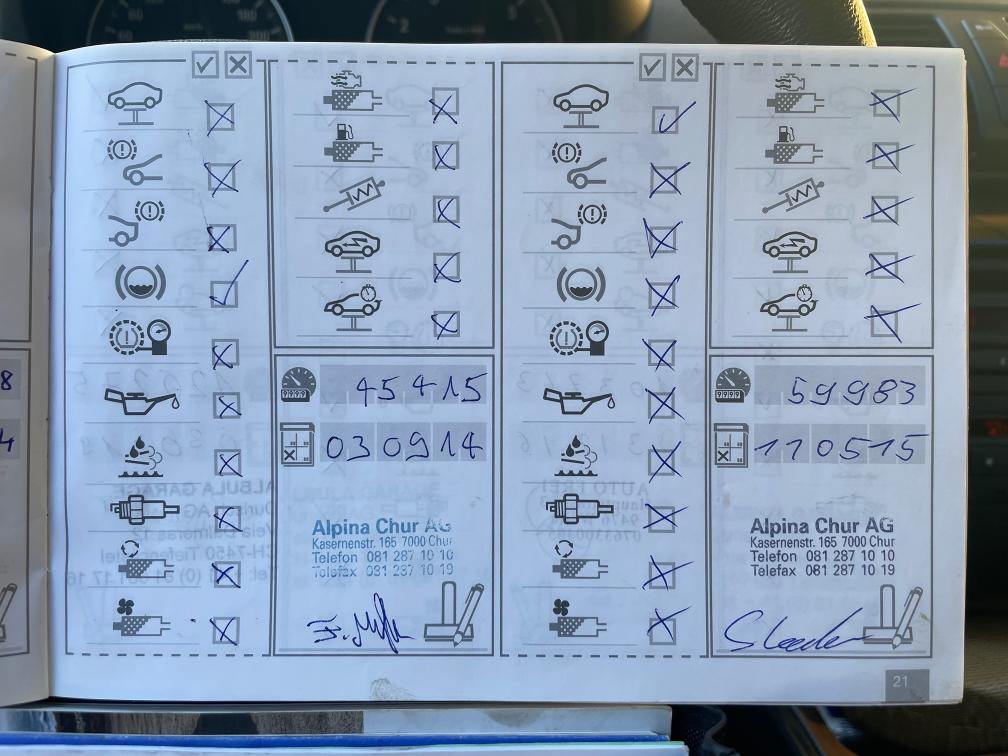 9999
45415
030914
Alpina Chur AG
Kasernenstr. 165 7000 Chur
Telefon 081 287 10 10
Telefax 081 287 10 19
9999
59983
110515
Alpina Chur AG
Kasernenstr. 165 7000 Chur
Telefon 081 287 10 10
Telefax 081 287 10 19
21